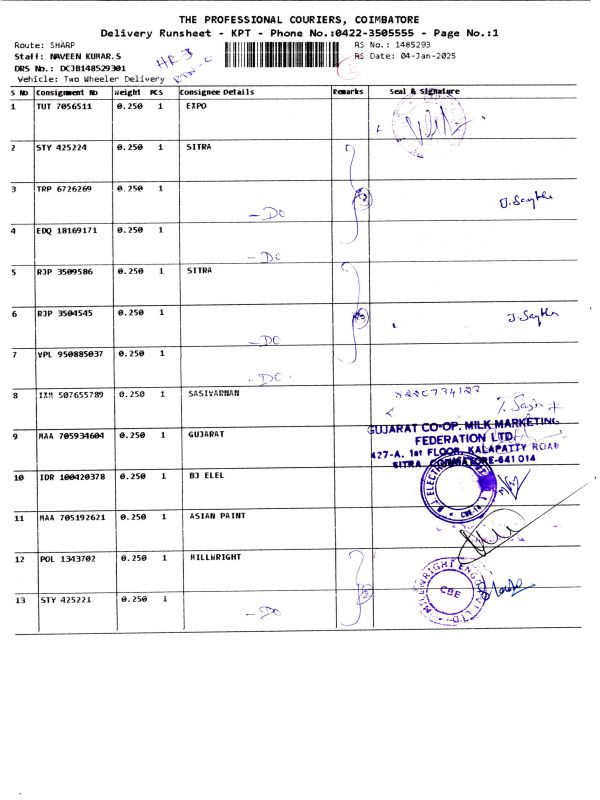 THE PROFESSIONAL COURIERS, COIMBATORE
Delivery Runsheet - KPT - Phone No.:0422-3505555 - Page No.:1
Route: SHARP
RS No.: 1485293
Staff: NAVEEN KUMAR.S
RS Date: 04-Jan-2025
DRS No.: DCJB148529301
Vehicle: Two Wheeler Delivery
HR-3
S No Consignment No Weight PCS Consignee Details Remarks Seal & Signature
1 TUT 7056511 0.250 1 EXPO
2 STY 425224 0.250 1 SITRA
3 TRP 6726269 0.250 1
- DO
4 EDQ 18169171 0.250 1
- DO
5 RJP 3509586 0.250 1 SITRA
6 RJP 3504545 0.250 1
- DO
7 VPL 950885037 0.250 1
- DO -
8 IXM 507655789 0.250 1 SASIVARNAN
9 MAA 705934604 0.250 1 GUJARAT
GUJARAT CO-OP. MILK MARKETING
FEDERATION LTD.
427-A, 1st FLOOR, KALAPATTY ROAD
SITRA, COIMBATORE-641 014
10 IDR 100420378 0.250 1 BJ ELEL
11 MAA 705192621 0.250 1 ASIAN PAINT
12 POL 1343702 0.250 1 MILLWRIGHT
CBE
13 STY 425221 0.250 1
- DO